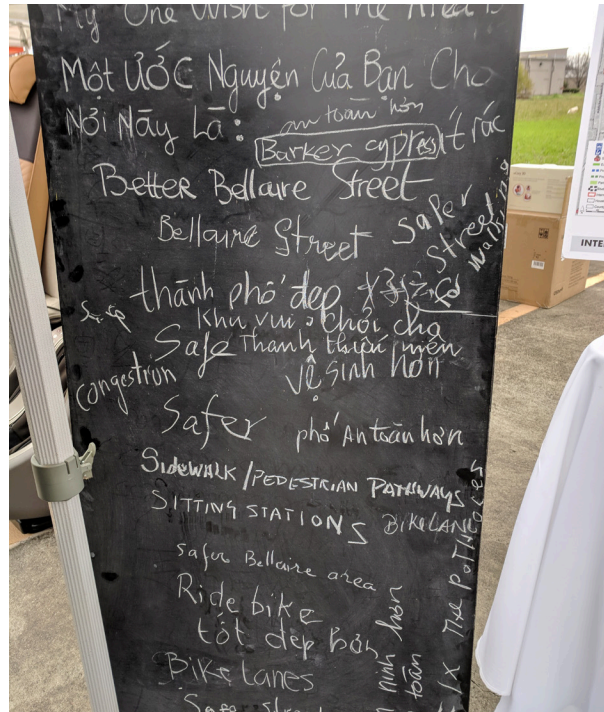 My One Wish for The Area is
Một ƯỚC Nguyện Của Bạn Cho
Nơi Này Là:
an toàn hơn
Barker cypress
ít rác
Better Bellaire Street
Bellaire Street
Safer
street
for
walking
thành phố đẹp
Khu vui chơi cho
Safe Thanh thiếu niên
vệ sinh hơn
congestion
Safer
phố An toàn hơn
SIDEWALK/PEDESTRIAN PATHWAYS
SITTING STATIONS
BIKE LANE
Safer Bellaire area
Ride bike
tốt đẹp hơn
Bike Lanes
Safer
ninh hơn
toàn
FIX THE POTHOLES
INTE